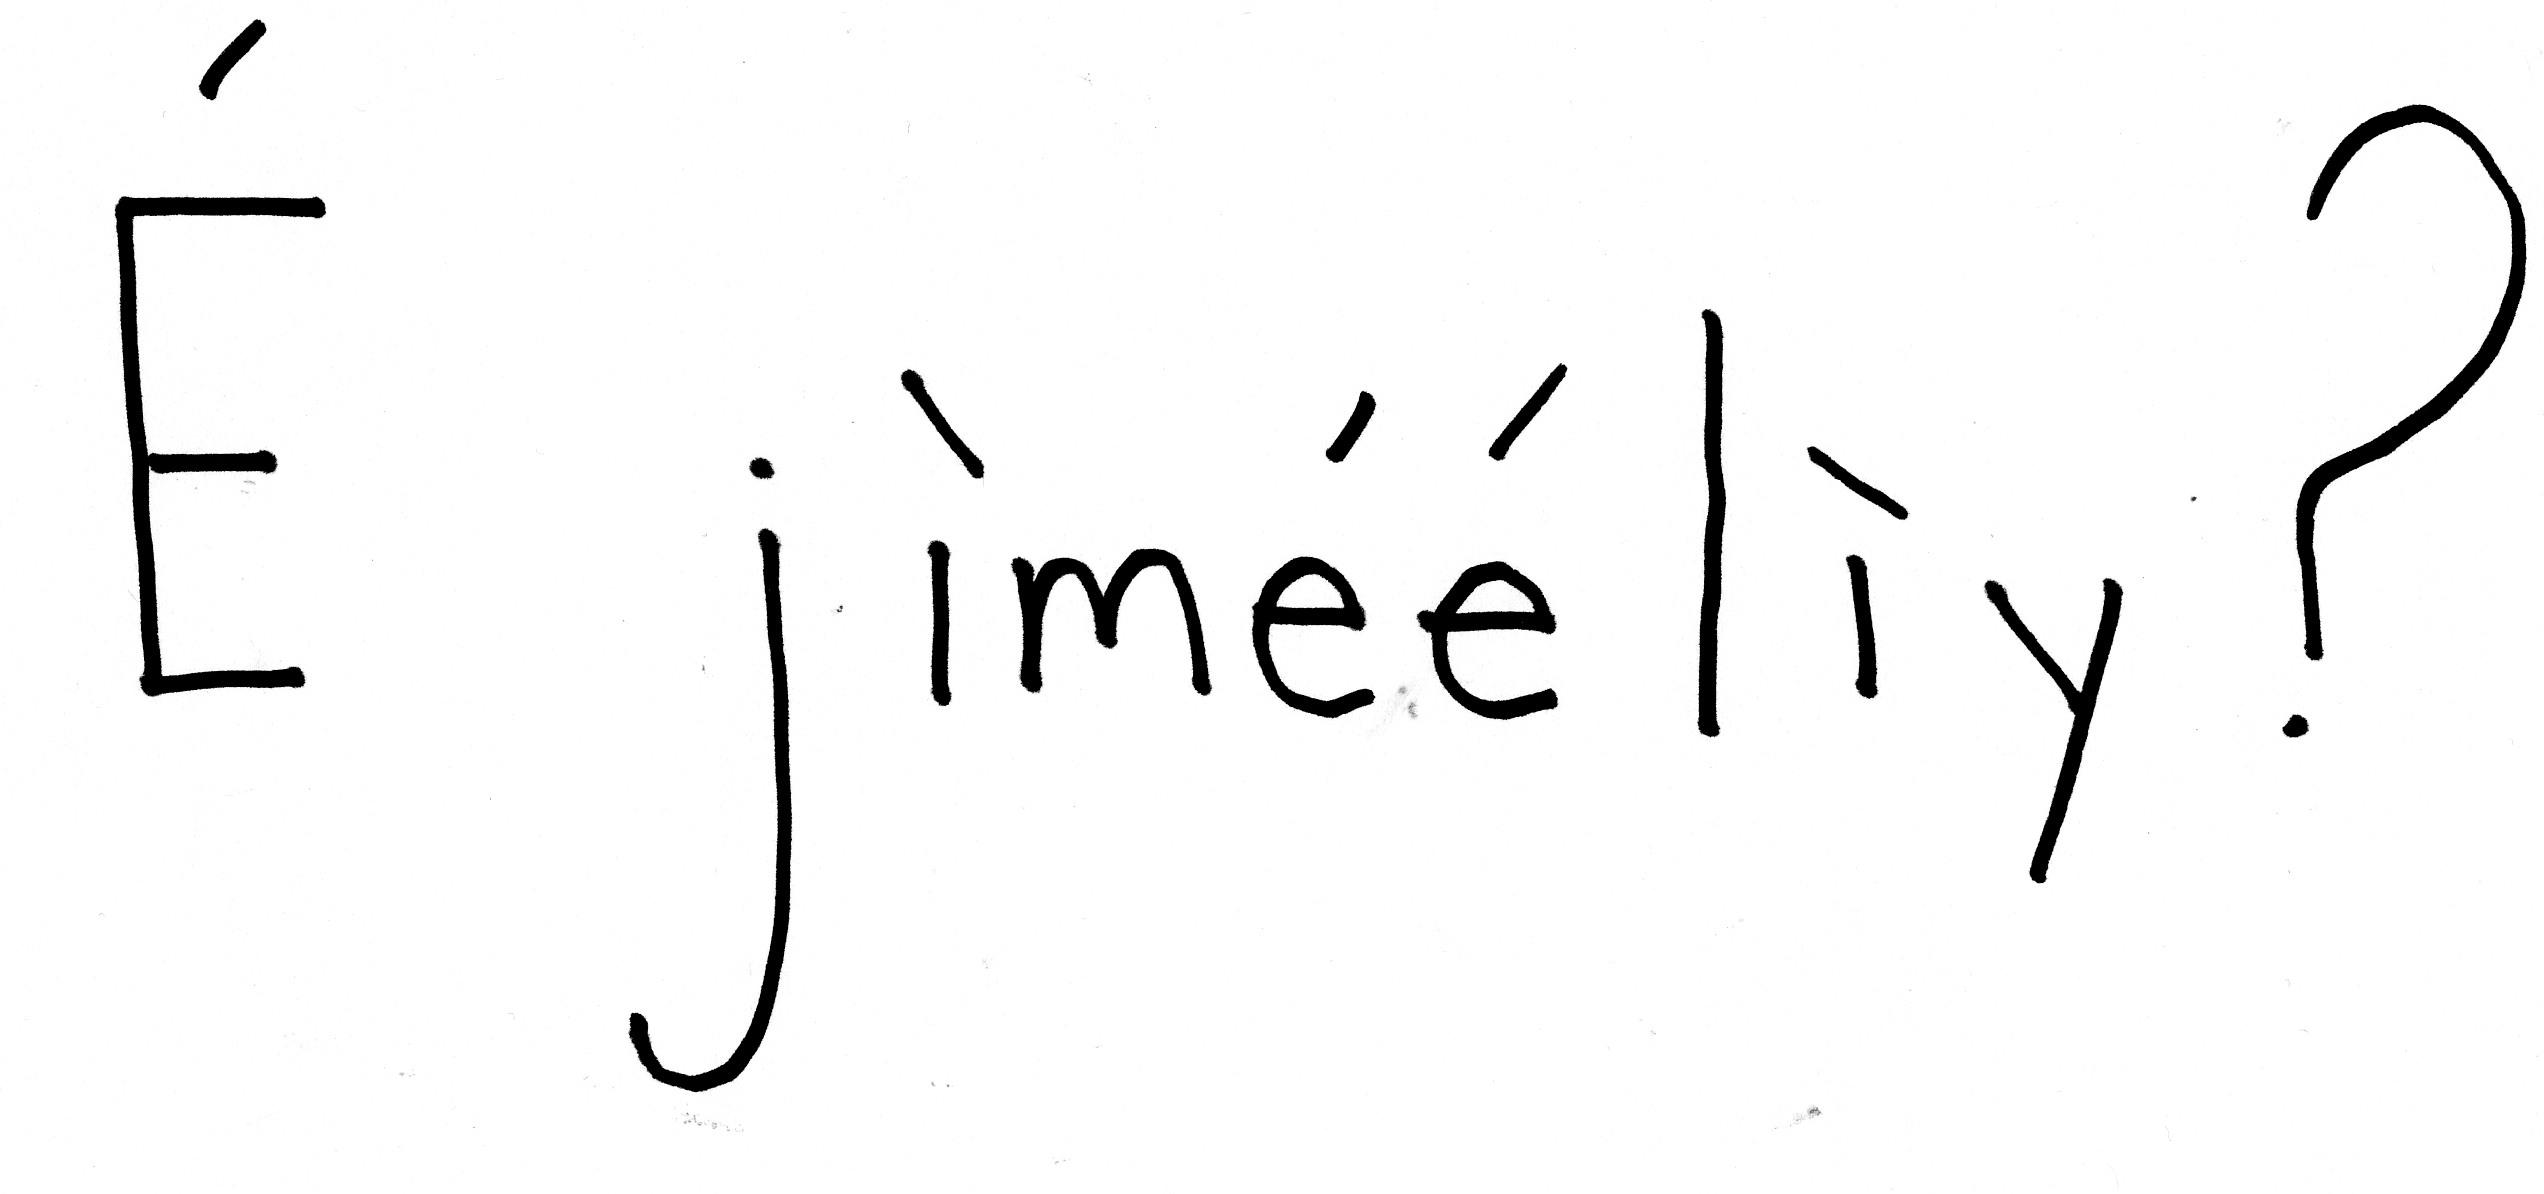 É jìméélìy?